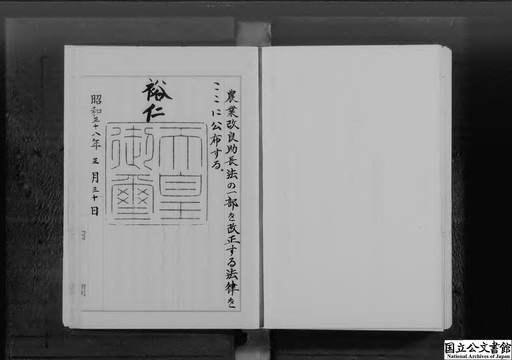 農業改良助長法の一部を改正する法律を
ここに公布する。
裕仁
天皇
御璽
昭和五十八年五月三十日
国立公文書館
National Archives of Japan